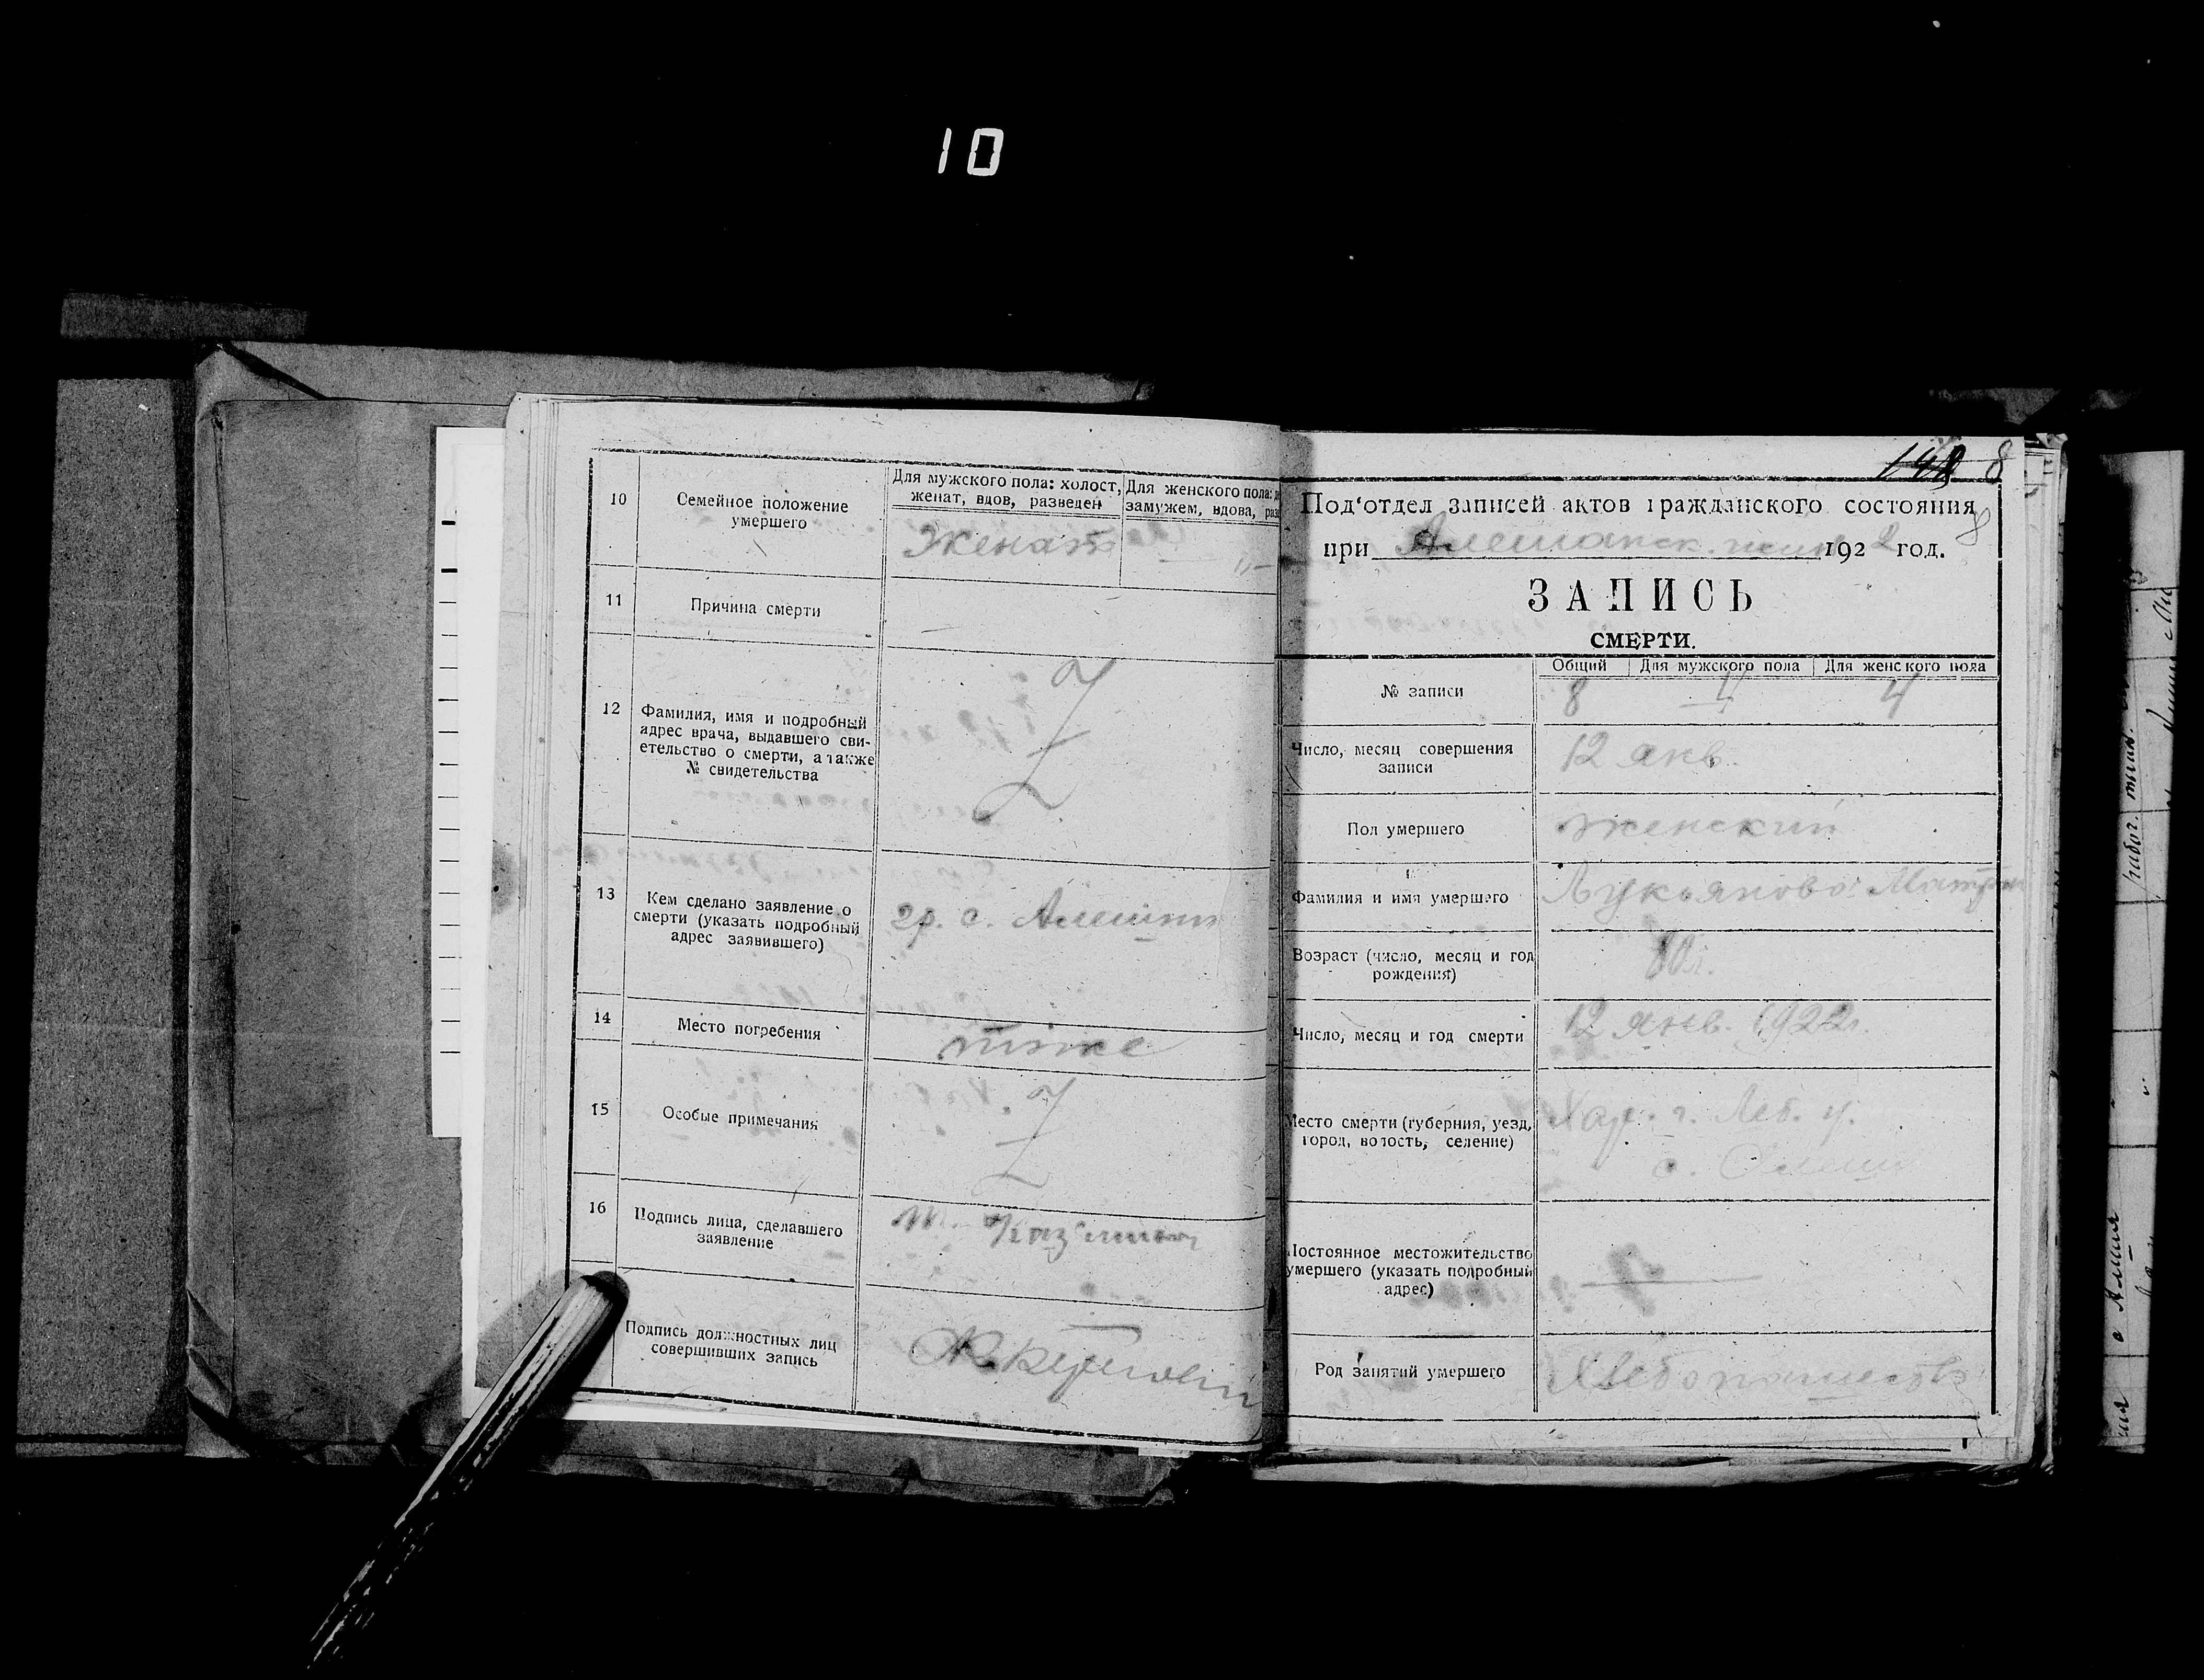 10
10
Семейное положение
умершего
Для мужского пола: холост,
женат, вдов, разведен
Для женского пола:
замужем, вдова, раз
Женат
11
Причина смерти
—
12
Фамилия, имя и подробный
адрес врача, выдавшего сви-
етельство о смерти, а также
№ свидетельства
13
Кем сделано заявление о
смерти (указать подробный
адрес заявившего)
гр. с. Алешни
14
Место погребения
тоже
15
Особые примечания
16
Подпись лица, сделавшего
заявление
Подпись должностных лиц
совершивших запись
148 8
Под'отдел записей актов гражданского состояния
8
при Алешанск. 1922 год.
ЗАПИСЬ
СМЕРТИ.
Общий Для мужского пола Для женского пола
№ записи
8 4
Число, месяц совершения
записи
12 янв.
Пол умершего
женский
Фамилия и имя умершего
Лукьянова Матрен
Возраст (число, месяц и год
рождения)
80 г.
Число, месяц и год смерти
12 янв. 1922 г.
Место смерти (губерния, уезд,
город, волость, селение)
Хар. г. Леб. у.
с. Алешн
Постоянное местожительство
умершего (указать подробный
адрес)
Род занятий умершего
Хлебопашество